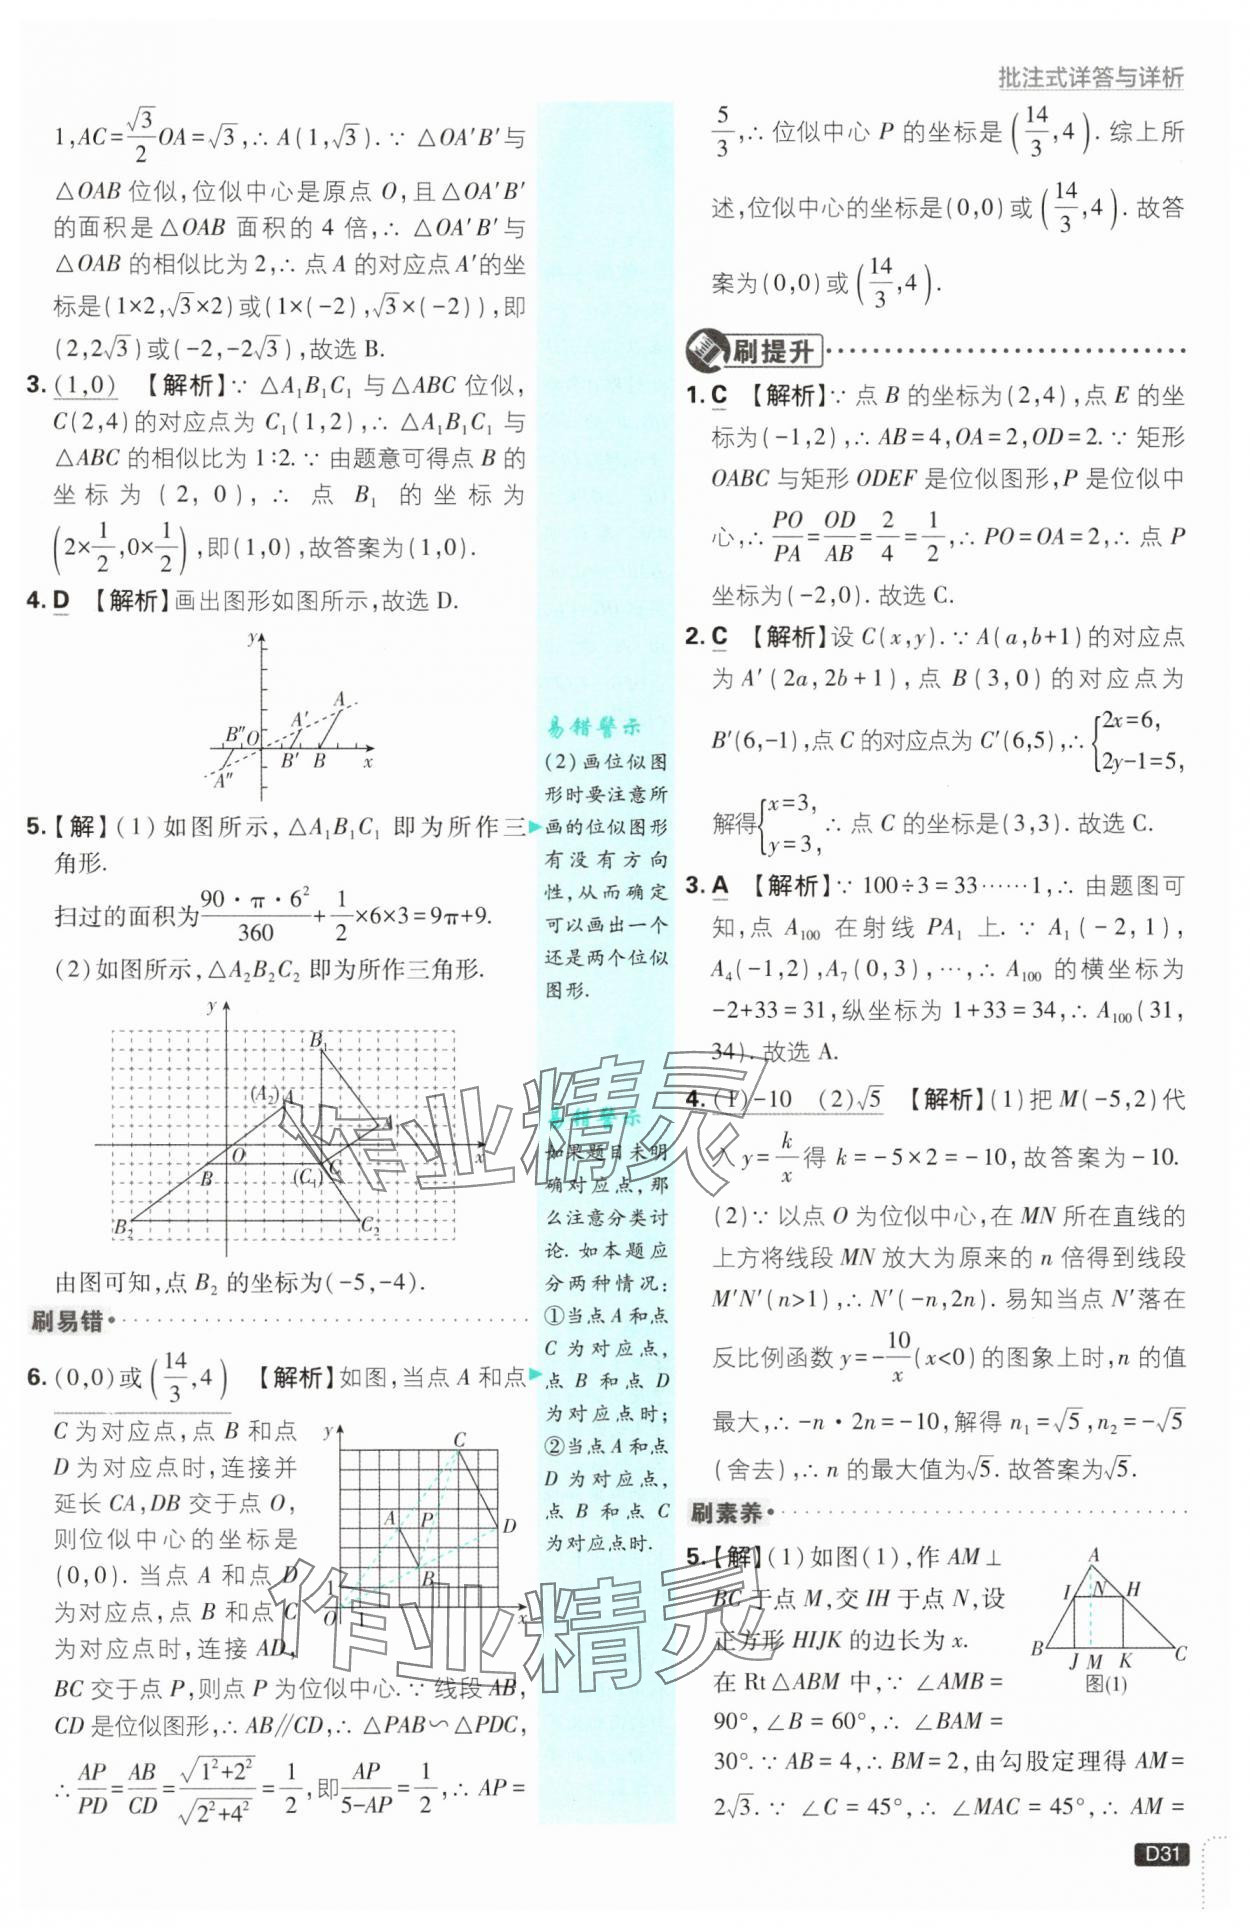 批注式详答与详析
1,AC=√3/2 OA=√3,∴ A(1,√3).∵ △OA′B′与
△OAB 位似,位似中心是原点 O,且△OA′B′
的面积是△OAB 面积的 4 倍,∴ △OA′B′与
△OAB 的相似比为 2,∴ 点 A 的对应点 A′的坐
标是(1×2,√3×2)或(1×(-2),√3×(-2)),即
(2,2√3)或(-2,-2√3),故选 B.
3. (1,0) 【解析】∵ △A₁B₁C₁ 与△ABC 位似,
C(2,4)的对应点为 C₁(1,2),∴ △A₁B₁C₁ 与
△ABC 的相似比为 1∶2.∵ 由题意可得点 B 的
坐标为(2,0),∴ 点 B₁ 的坐标为
(2×1/2,0×1/2),即(1,0),故答案为(1,0).
4. D 【解析】画出图形如图所示,故选 D.
y
A
A′
B″
O
B′
B
x
A″
5.【解】(1)如图所示,△A₁B₁C₁ 即为所作三
角形.
扫过的面积为 90·π·6²/360+1/2×6×3=9π+9.
(2)如图所示,△A₂B₂C₂ 即为所作三角形.
y
B₁
(A₂)
A
A₁
O
x
B
(C₁)
C
B₂
C₂
由图可知,点 B₂ 的坐标为(-5,-4).
刷易错
6. (0,0)或(14/3,4) 【解析】如图,当点 A 和点
C 为对应点,点 B 和点
D 为对应点时,连接并
延长 CA,DB 交于点 O,
则位似中心的坐标是
(0,0).当点 A 和点 D
为对应点,点 B 和点 C
为对应点时,连接 AD,
y
C
A
P
D
B
1
O
1
x
BC 交于点 P,则点 P 为位似中心.∵ 线段 AB,
CD 是位似图形,∴ AB∥CD,∴ △PAB∽△PDC,
∴ AP/PD=AB/CD=√(1²+2²)/√(2²+4²)=1/2,即AP/(5-AP)=1/2,∴ AP=
易错警示
(2)画位似图
形时要注意所
画的位似图形
有没有方向
性,从而确定
可以画出一个
还是两个位似
图形.
易错警示
如果题目未明
确对应点,那
么注意分类讨
论.如本题应
分两种情况:
①当点 A 和点
C 为对应点,
点 B 和点 D
为对应点时;
②当点 A 和点
D 为对应点,
点 B 和点 C
为对应点时.
5/3,∴ 位似中心 P 的坐标是(14/3,4).综上所
述,位似中心的坐标是(0,0)或(14/3,4).故答
案为(0,0)或(14/3,4).
刷提升
1. C 【解析】∵ 点 B 的坐标为(2,4),点 E 的坐
标为(-1,2),∴ AB=4,OA=2,OD=2.∵ 矩形
OABC 与矩形 ODEF 是位似图形,P 是位似中
心,∴ PO/PA=OD/AB=2/4=1/2,∴ PO=OA=2,∴ 点 P
坐标为(-2,0).故选 C.
2. C 【解析】设 C(x,y).∵ A(a,b+1)的对应点
为 A′(2a,2b+1),点 B(3,0)的对应点为
B′(6,-1),点 C 的对应点为 C′(6,5),∴ {2x=6, 2y-1=5,
解得{x=3, y=3, ∴ 点 C 的坐标是(3,3).故选 C.
3. A 【解析】∵ 100÷3=33……1,∴ 由题图可
知,点 A₁₀₀ 在射线 PA₁ 上.∵ A₁(-2,1),
A₄(-1,2),A₇(0,3),…,∴ A₁₀₀ 的横坐标为
-2+33=31,纵坐标为 1+33=34,∴ A₁₀₀(31,
34).故选 A.
4. (1)-10 (2)√5 【解析】(1)把 M(-5,2)代
入 y=k/x 得 k=-5×2=-10,故答案为-10.
(2)∵ 以点 O 为位似中心,在 MN 所在直线的
上方将线段 MN 放大为原来的 n 倍得到线段
M′N′(n>1),∴ N′(-n,2n).易知当点 N′落在
反比例函数 y=-10/x(x<0)的图象上时,n 的值
最大,∴ -n·2n=-10,解得 n₁=√5,n₂=-√5
(舍去),∴ n 的最大值为√5.故答案为√5.
刷素养
5.【解】(1)如图(1),作 AM⊥
BC 于点 M,交 IH 于点 N,设
正方形 HIJK 的边长为 x.
在 Rt△ABM 中,∵ ∠AMB=
90°,∠B=60°,∴ ∠BAM=
A
I
N
H
B
J
M
K
C
图(1)
30°.∵ AB=4,∴ BM=2,由勾股定理得 AM=
2√3.∵ ∠C=45°,∴ ∠MAC=45°,∴ AM=
D31
作业精灵
作业精灵